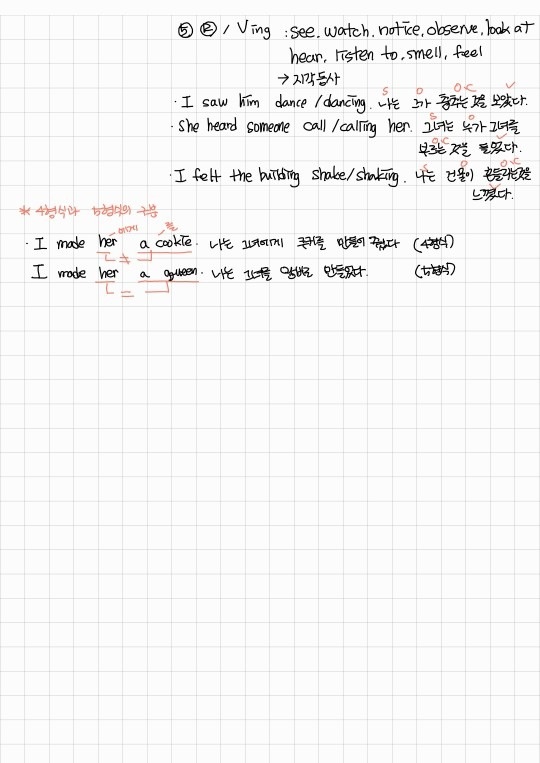 ⑤ Ⓡ / Ving : see, watch, notice, observe, look at
hear, listen to, smell, feel
→ 지각동사
S O O.C V
· I saw him dance / dancing. 나는 그가 춤추는 것을 보았다.
S O
· She heard someone call / calling her. 그녀는 누가 그녀를
O.C V
부르는 것을 들었다.
S O O.C
· I felt the building shake / shaking. 나는 건물이 흔들리는것을
V
느꼈다.
* 4형식과 5형식의 구분
에게 를
· I made her a cookie. 나는 그녀에게 쿠키를 만들어 주었다 (4형식)
≠
I made her a queen. 나는 그녀를 왕비로 만들었다. (5형식)
=